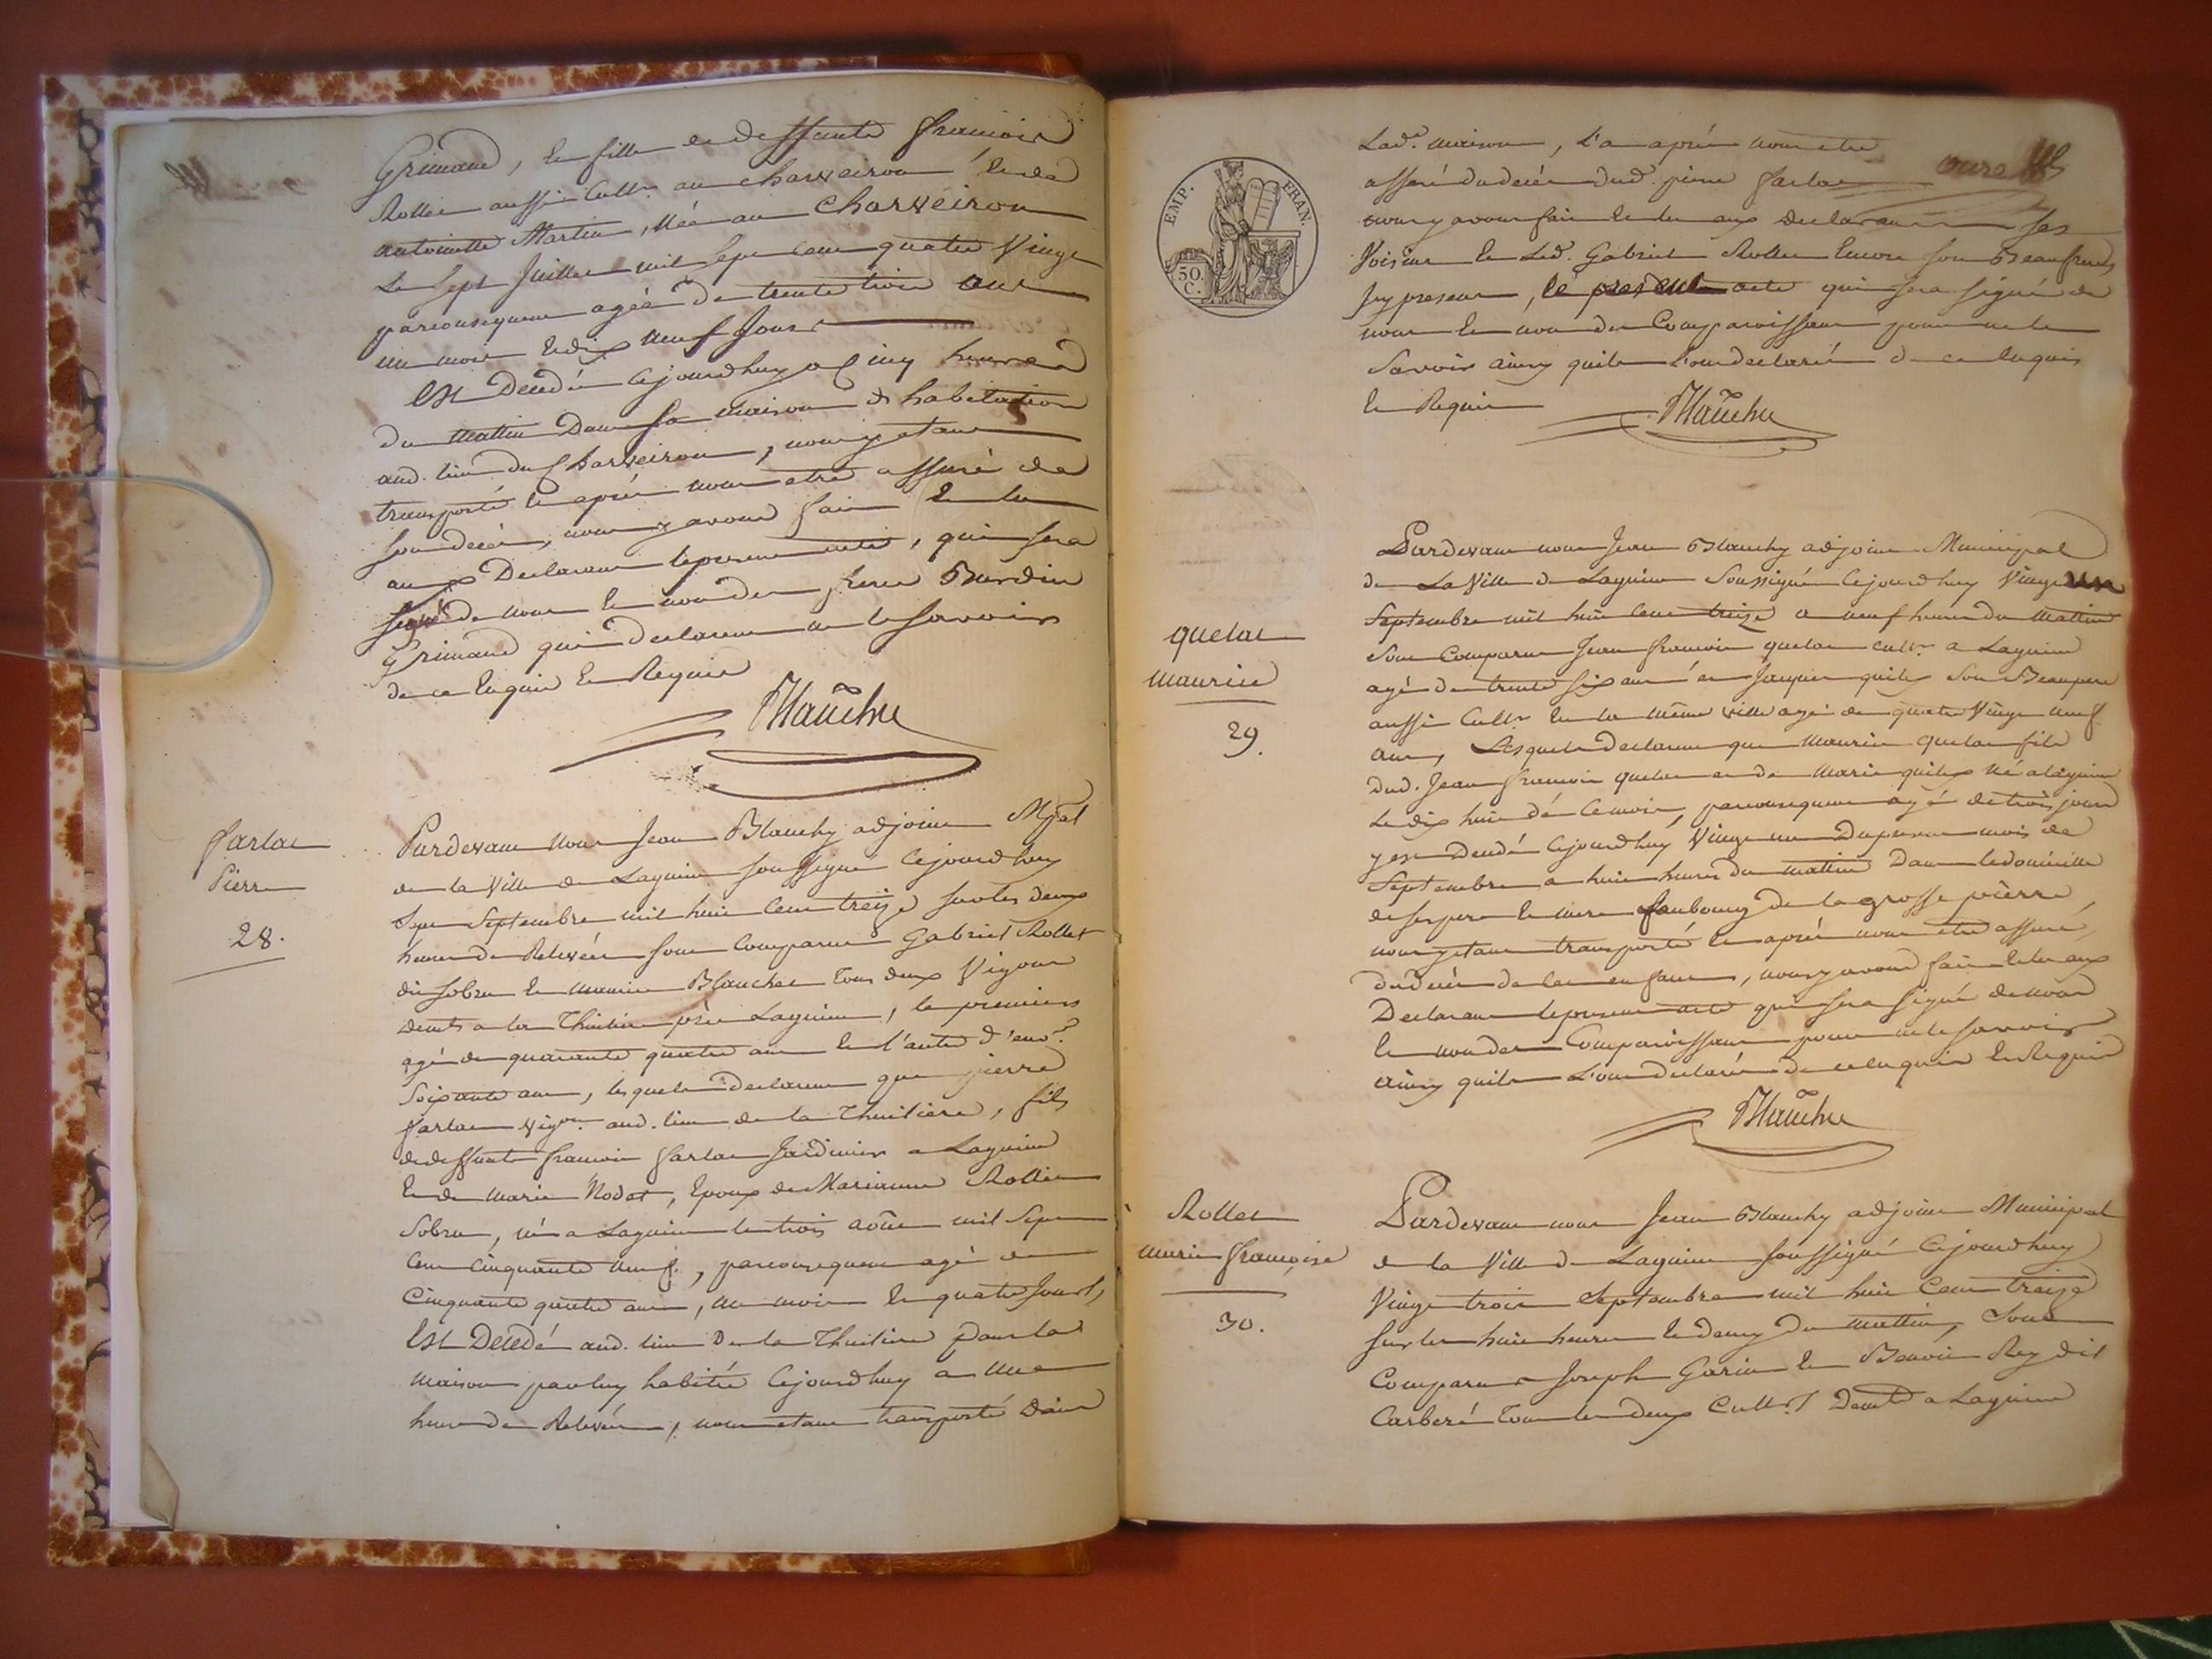 Grimand, et fille de deffunts françois
Rollet aussi Cultr. au Charveiron et de
antoinette Martin, Née au Charveiron
Le sept Juillet mil sept cent quatre Vingt
parconsequent agée de trente trois ans
un mois et dix neuf Jours
Est Decedée cejourdhuy a cinq heures
du mattin Dans sa maison d'habitation
aud. lieu du Charveiron, nous y etant
transporté et après nous etre assuré de
son decés, nous y avons fait et lu
aux Declarants le present acte, qui sera
signé de nous et non des freres Burdin
Grimand qui declarent ne le savoir
de ce Enquis et Requis
Blanchy
farlat
Pierre
28.
Pardevant nous Jean Blanchy adjoint Mpal
de la Ville de Lagnieu soussigné Cejourdhuy
Sept Septembre mil huit Cent treize sur les deux
heures de Relevée sont Comparus Gabriel Rollet
dit Sobru et maurice Blanchet tous deux Vigons
demts a la Thuiliere près Lagnieu, le premier
agé de quarante quatre ans et l'autre d'env.
Soixante ans, lesquels declarent que pierre
farlat Vigon aud. lieu de la Thuiliere, fils
de deffunts françois farlat Jardinier a Lagnieu
et de Marie Nodet, Epoux de Marianne Rollet
Sobru, né a Lagnieu le trois août mil Sept
Cent Cinquante neuf, parconsequent agé de
Cinquante quatre ans, un mois et quatre Jours,
Est Decedé aud. lieu De la Thuiliere Dans la
maison par luy habitée Cejourdhuy a une
heure de Relevée, nous etant transporté Dans
Lad. maison, Et après nous etre onze
assuré du decès dud. pierre farlat
nous y avons fait et lu aux Declarants ses
Voisins et Led. Gabriel Rollet Encore son Beaufrere
Icy present, le present acte qui sera signé de
nous et non des Comparoissants pour ne le
Savoir ainsy quils L'ont declaré de ce Enquis
et Requis
Blanchy
EMP. FRAN.
50 C.
quelat
maurice
29.
Pardevant nous Jean Blanchy adjoint Municipal
de La Ville de Lagnieu Soussigné Cejourdhuy Vingt un
Septembre mil huit Cent treize a neuf heures du Mattin
Sont Comparus Jean françois quelat cultr a Lagnieu
agé de trente six ans et Jacques quilex Son Beaupere
aussi Cultr En la même ville agé de quatre Vingt neuf
ans, Lesquels declarent que Maurice quelat fils
Dud. Jean françois quelat et de Marie quilex Né a Lagnieu
Le dix huit de Cemois, parconsequent agé de trois jours
y est Decedé Cejourdhuy Vingt un Du present mois de
Septembre a huit heures du mattin Dans le domicille
de ses pere et mere faubourg de la grosse pierre,
nous y etant transporté et après nous etre assuré,
du decès de cet enfant, nous y avons fait et lu aux
Declarants le present acte qui sera signé de nous
et non des Comparoissants pour ne le savoir
ainsy quils L'ont declaré de ce enquis et Requis
Blanchy
Rollet
marie françoise
30.
Pardevant nous Jean Blanchy adjoint Municipal
de la Ville de Lagnieu soussigné Cejourdhuy
Vingt trois Septembre mil huit Cent treize
sur les huit heures et demy du mattin, Sont
Comparus Joseph Garin et Benoit Rey dit
Carberé tous les deux Cultrs Demts a Lagnieu